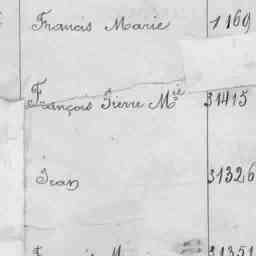 Francis Marie 1169
François Pierre Mie 31415
Jean 31326
31351